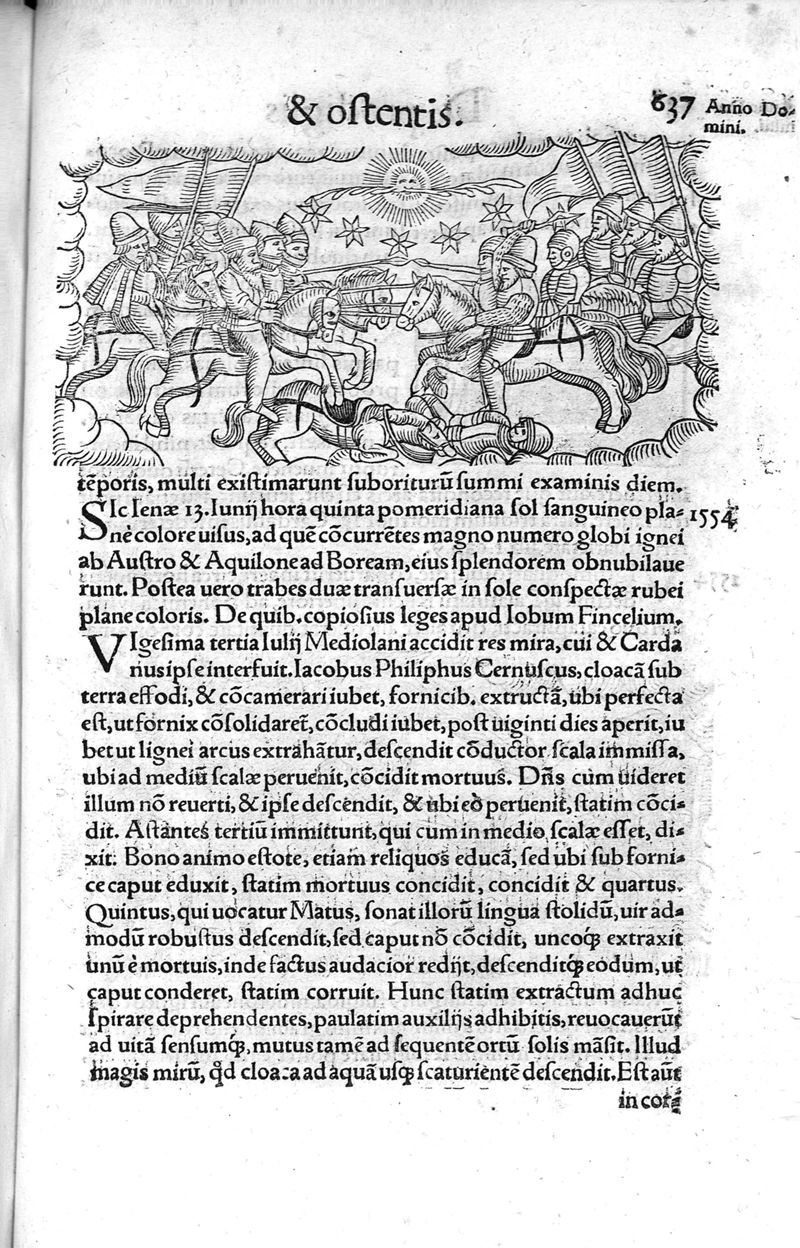 & oſtentis.
637 Anno Do-
mini.
tẽporis, multi exiſtimarunt ſuboriturũ ſummi examinis diem.
SIc Ienæ 13. Iunĳ hora quinta pomeridiana ſol ſanguineo pla-
1554.
nè colore uiſus, ad quẽ cõcurrẽtes magno numero globi ignei
ab Auſtro & Aquilone ad Boream, eius ſplendorem obnubilaue
runt. Poſtea uero trabes duæ tranſuerſæ in ſole conſpectæ rubei
plane coloris. De quib. copioſius leges apud Iobum Fincelium.
VIgeſima tertia Iulĳ Mediolani accidit res mira, cui & Cardã
nus ipſe interfuit. Iacobus Philiphus Cernuſcus, cloacã ſub
terra effodi, & cõcamerari iubet, fornicib. extructã, ubi perfecta
eſt, ut fornix cõſolidaret̃, cõcludi iubet, poſt uiginti dies aperit, iu
bet ut lignei arcus extrahãtur, deſcendit cõductor ſcala immiſſa,
ubi ad mediũ ſcalæ peruenit, cõcidit mortuus. Dñs cum uideret
illum nõ reuerti, & ipſe deſcendit, & ubi eò peruenit, ſtatim cõci-
dit. Aſtantes tertiũ immittunt, qui cum in medio ſcalæ eſſet, di-
xit: Bono animo eſtote, etiam reliquos educã, ſed ubi ſub forni-
ce caput eduxit, ſtatim mortuus concidit, concidit & quartus.
Quintus, qui uocatur Matus, ſonat illorũ lingua ſtolidũ, uir ad-
modũ robuſtus deſcendit, ſed caput nõ cõcidit, uncoq́; extraxit
unũ è mortuis, inde factus audacior redĳt, deſcenditq́; eodum, ut
caput conderet, ſtatim corruit. Hunc ſtatim extractum adhuc
ſpirare deprehendentes, paulatim auxilĳs adhibitis, reuocauerũt
ad uitã ſenſumq́;, mutus tamẽ ad ſequentẽ ortũ ſolis mãſit. Illud
magis mirũ, qd̃ cloaca ad aquã uſq; ſcaturientẽ deſcendit. Eſt aũt